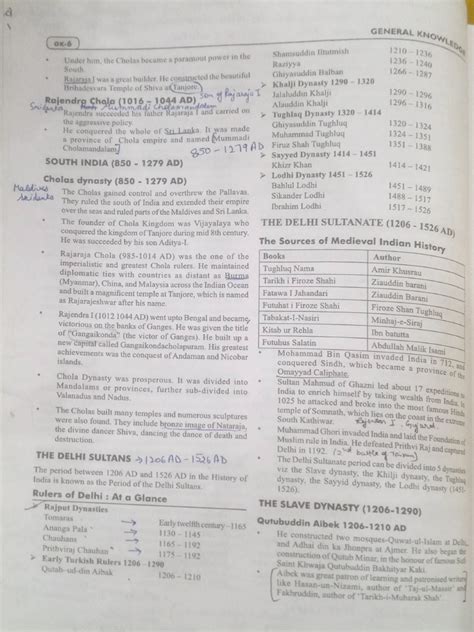 GK-8
GENERAL KNOWLEDGE
Under him, the Cholas became a paramount power in the
South.
Rajaraja I was a great builder. He constructed the beautiful
Brihadesvars Temple of Shiva at Tanjore.
son of Rajaraja I
Rajendra Chola (1016 - 1044 AD)
Rajendra succeeded his father Rajaraja I and carried on
the aggressive policy.
He conquered the whole of Sri Lanka. It was made
a province of Chola empire and named Mummadi
Cholamandalam
850 - 1279 AD
SOUTH INDIA (850 - 1279 AD)
Cholas dynasty (850 - 1279 AD)
Maldives
The Cholas gained control and overthrew the Pallavas.
They ruled the south of India and extended their empire
over the seas and ruled parts of the Maldives and Sri Lanka.
The founder of Chola Kingdom was Vijayalaya who
conquered the kingdom of Tanjore during mid 8th century.
He was succeeded by his son Aditya-I.
Rajaraja Chola (985-1014 AD) was the one of the
imperialistic and greatest Chola rulers. He maintained
diplomatic ties with countries as distant as Burma
(Myanmar), China, and Malaysia across the Indian Ocean
and built a magnificent temple at Tanjore, which is named
as Rajarajeshwar after his name.
Rajendra I (1012 1044 AD) went upto Bengal and became
victorious on the banks of Ganges. He was given the title
of "Gangaikonda" (the victor of Ganges). He built up a
new capital called Gangaikondacholspuram. His greatest
achievements was the conquest of Andaman and Nicobar
islands.
Chola Dynasty was prosperous. It was divided into
Mandaloms or provinces, further sub-divided into
Valanadus and Nadus.
The Cholas built many temples and numerous sculptures
were also found. They include bronze image of Nataraja,
the divine dancer Shiva, dancing the dance of death and
destruction.
THE DELHI SULTANS → 1206 AD - 1526 AD
The period between 1206 AD and 1526 AD in the History of
India is known as the Period of the Delhi Sultans.
Rulers of Delhi : At a Glance
➤ Rajput Dynasties
Tomaras → Early twelfth century -1165
Ananga Pala → 1130 - 1145
Chauhans → 1165 - 1192
Prithviraj Chauhan → 1175 - 1192
➤ Early Turkish Rulers 1206 - 1290
Qutab-ud-din Aibak 1206 - 1210
Shamsuddin Iltutmish 1210 - 1236
Raziya 1236 - 1240
Ghiyasuddin Balban 1266 - 1287
➤ Khalji Dynasty 1290 - 1320
Jalaluddin Khalji 1290 - 1296
Alauddin Khalji 1296 - 1316
➤ Tughlaq Dynasty 1320 - 1414
Ghiyasuddin Tughluq 1320 - 1324
Muhammad Tughluq 1324 - 1351
Firuz Shah Tughluq 1351 - 1388
➤ Sayyed Dynasty 1414 - 1451
Khizr Khan 1414 - 1421
➤ Lodhi Dynasty 1451 - 1526
Bahlul Lodhi 1451 - 1489
Sikander Lodhi 1488 - 1517
Ibrahim Lodhi 1517 - 1526
THE DELHI SULTANATE (1206 - 1526 AD)
The Sources of Medieval Indian History
Books Author
Tughluq Nama Amir Khusrau
Tarikh i Firoze Shahi Ziauddin barani
Fatawa I Jahandari Ziauddin Barani
Futuhat i Firoze Shahi Firoze Shah Tughluq
Tabakat-I-Nasiri Minhaj-e-Siraj
Kitab ur Rehla Ibn batutta
Futuhus Salatin Abdullah Malik Isami
Mohammad Bin Qasim invaded India in 712, and
conquered Sindh, which became a province of the
Omayyad Caliphate.
Sultan Mahmud of Ghazni led about 17 expeditions to
India to enrich himself by taking wealth from India. In
1025 he attacked and broke into the most famous Hindu
temple of Somnath, which lies on the coast in the extreme
South Kathiwar.
Muhammad Ghori invaded India and laid the Foundation of
Muslim rule in India. He defeated Prithvi Raj and captured
Delhi in 1192. (2nd battle of Tarain)
The Delhi Sultanate period can be divided into 5 dynasties
viz the Slave dynasty, the Khilji dynasty, the Tughlaq
dynasty, the Sayyid dynasty, and the Lodhi dynasty.
THE SLAVE DYNASTY (1206-1290)
Qutubuddin Aibek 1206-1210 AD
He constructed two mosques-Quwat-ul-Islam at Delhi
and Adhai din ka Jhonpra at Ajmer. He also began the
construction of Qutub Minar, in the honour of famous Sufi
Saint Khwaja Qutubuddin Bakhtiyar Kaki.
Aibek was great patron of learning and patronised writers
like Hasan-un-Nizami, author of 'Taj-ul-Massir' and
Fakhruddin, author of 'Tarikh-i-Mubarak Shah'.